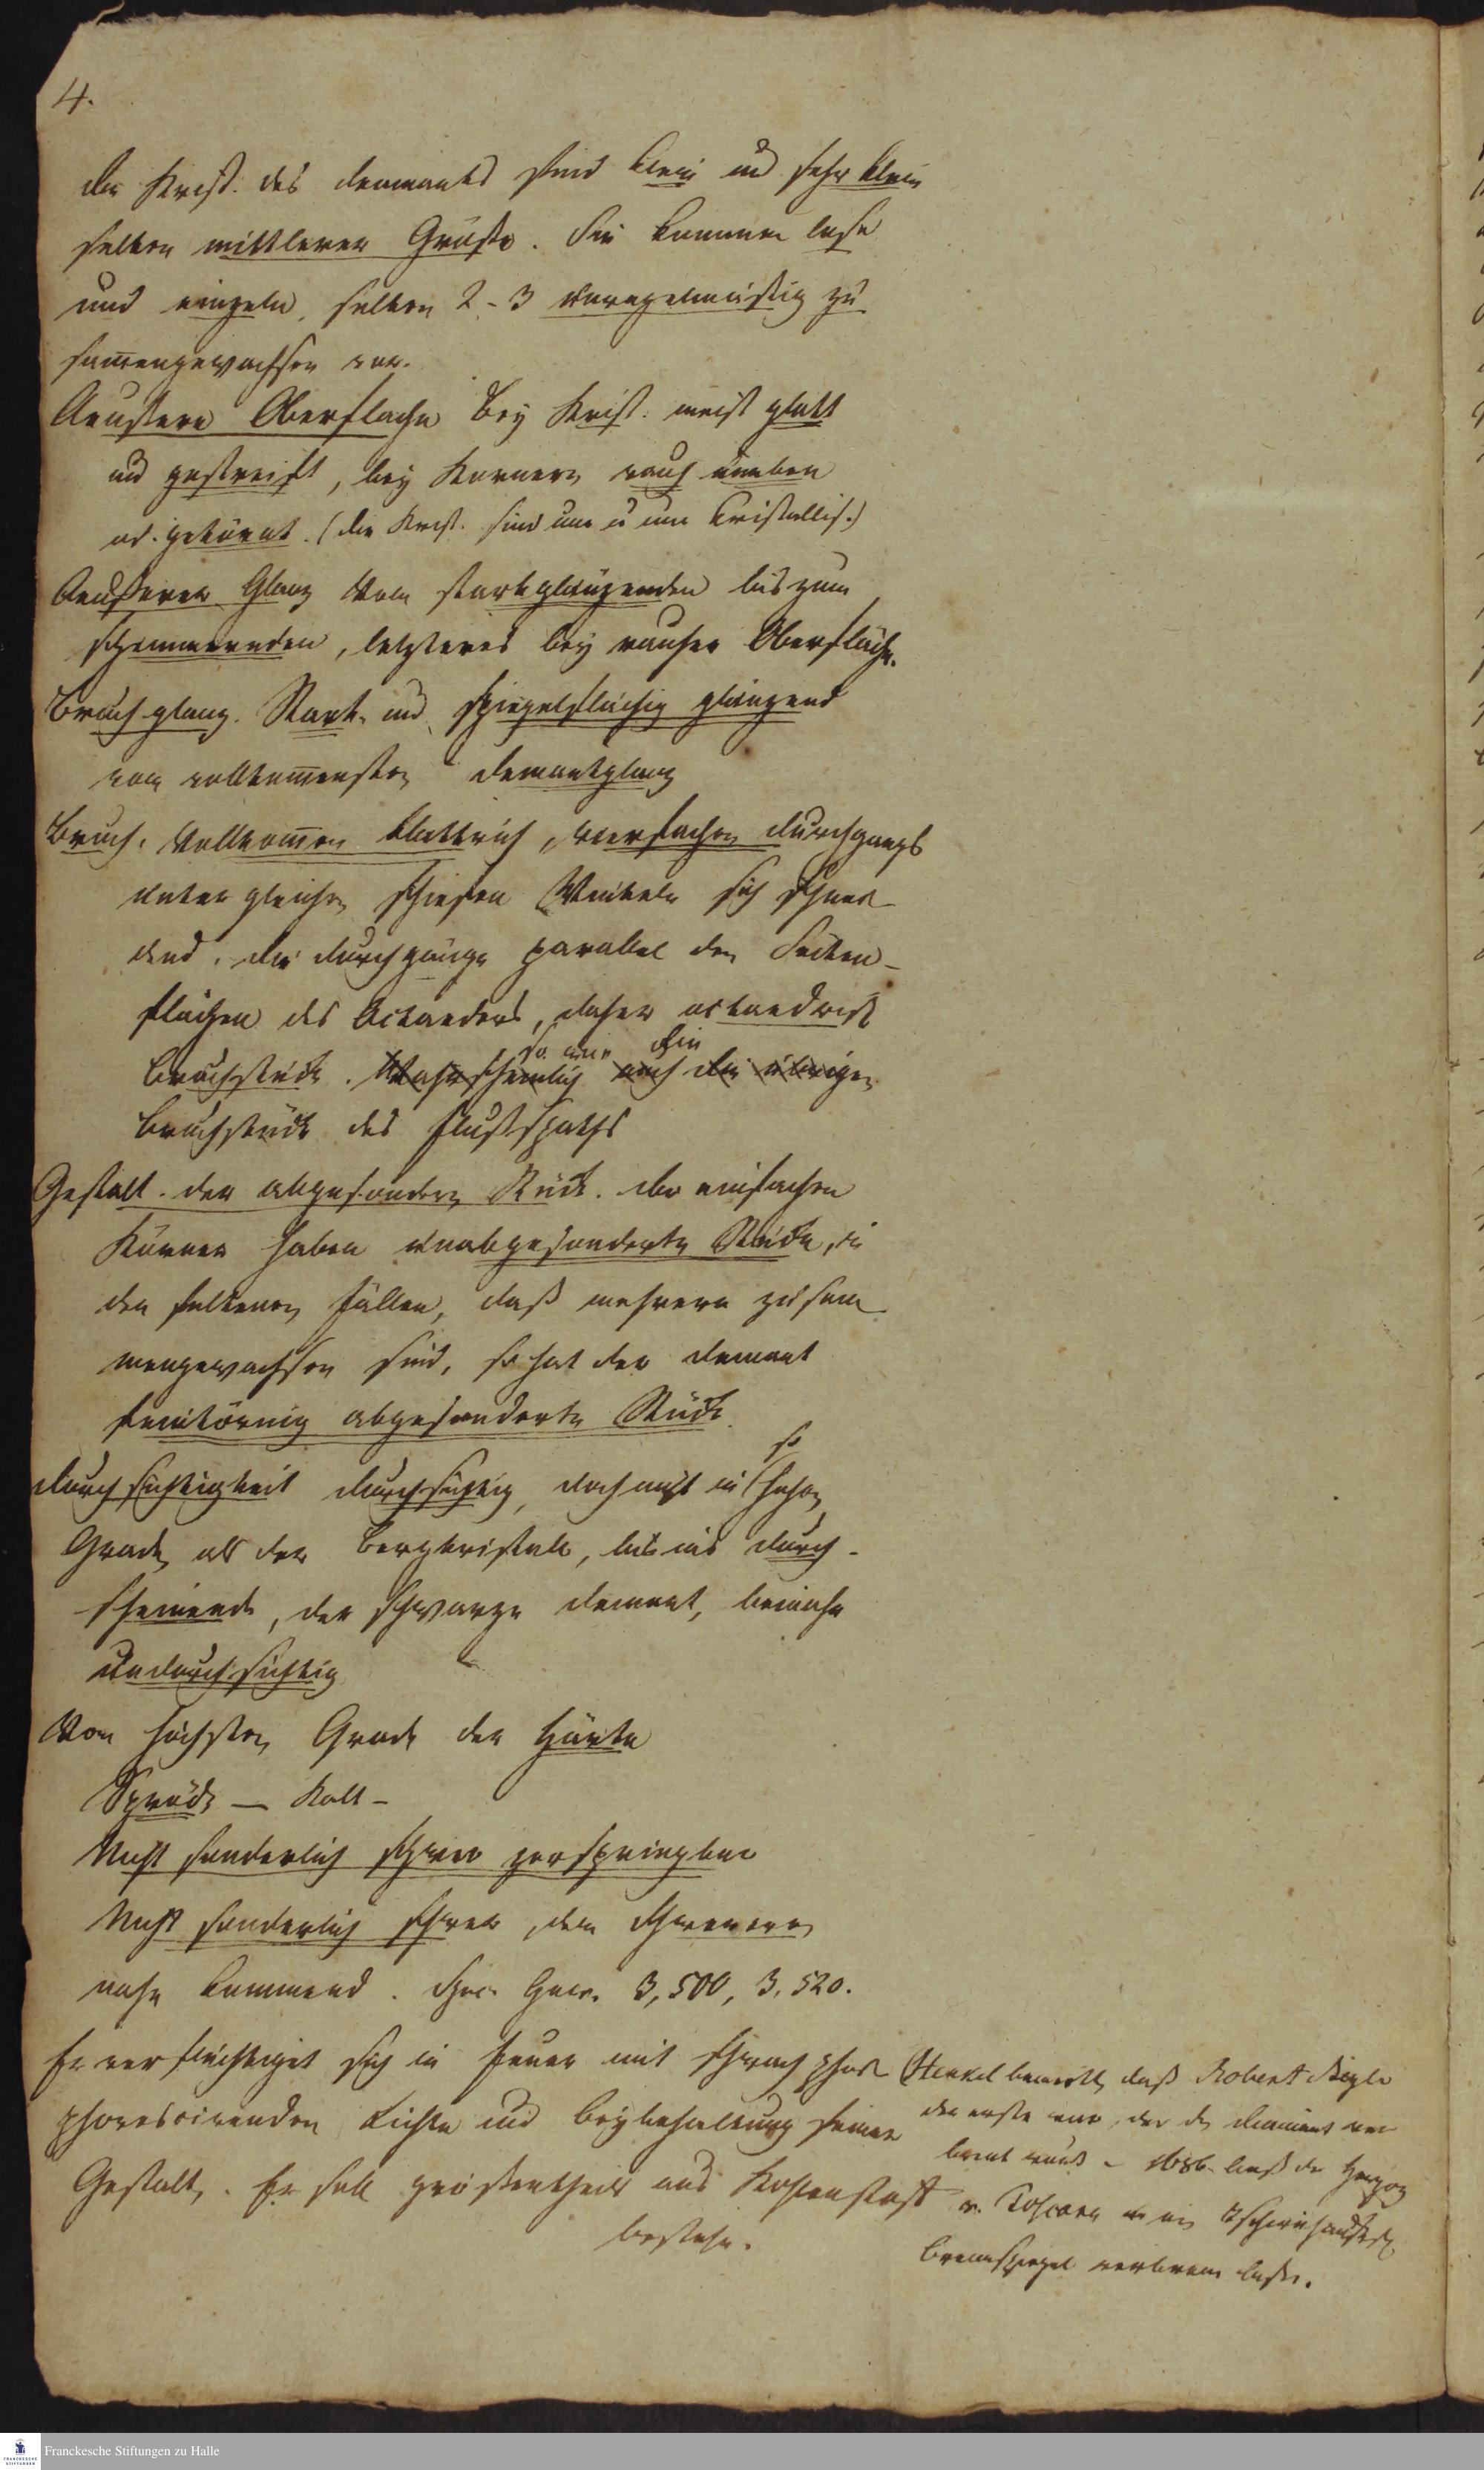 4.
Die Krist. des Demants sind klein und sehr klein
selten mittlerer Größe. Sie kommen lose
und einzeln, selten 2-3 unregelmäßig zu
sam̄engewachsen vor.
Aeussere Oberflache bey Krist. meist glatt
und gestreift, bey Kornern rauh uneben
od. gekörnt. (die Krist. sind um u um kristallis.)
Aeusserer Glanz Vom starkglänzenden bis zum
schimmernden, letzteres bey rauher Oberfläche.
Bruchglanz. Stark- und spiegelflächig glänzend
von vollkom̄ensten Demantglanz
Bruch. Vollkom̄en blattrich, vierfachen Durchgangs
unter gleichen schiefen Winkeln sich schnei-
dend. Die Durchgänge parallel den Seiten-
flächen des Octaeders, daher octaedrisch
Bruchstück. Wahrscheinlich auch die übrigen
so wie die
Bruchstück des Flußspaths
Gestalt der abgesondern Stück. Die einfachen
Körner haben unabgesonderte Stücke, in
den seltenen Fällen, daß mehrere zusam-
mengewachsen sind, so hat der Demant
feinkörnig abgesonderte Stück
Durchsichtigkeit durchsichtig, doch nicht in so hohen
Grade, als der Bergkristall, bis ins durch-
scheinende, der schwarze Demant, beinahe
undurchsichtig
Vom höchsten Grade der Härte
Spröde — Kalt –
Nicht sonderlich schwer zerspringbar
Nicht sonderlich schwer, dem schweren
nahe kommend. Spec. Gew. 3,500, 3,520.
Er verflüchtiget sich in Feuer mit schwach phos
phorescirenden Lichte und Beybehaltung seiner
Gestalt. Er soll größtentheils aus Kohlenstoff
bestehn.
Henkel bemerkt, daß Robert Boyle
der erste war, der den Diamant ver
brent – 1686 ließ der Herzog
v. Toscana in ein Tschirnhausisch
Brennspiegel verbrenn lassen.
Franckesche Stiftungen zu Halle